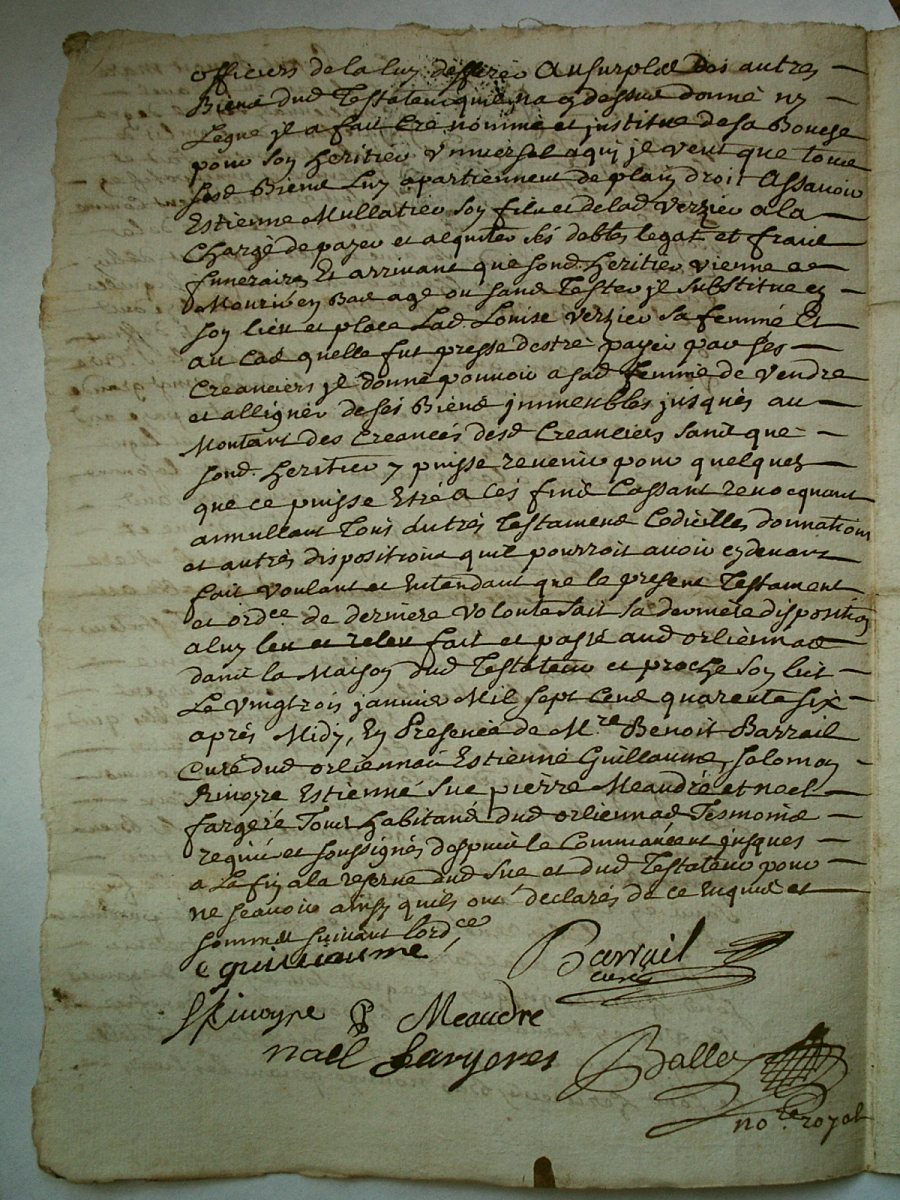 officiers de la luy defferer Ausurplus des autres
Biens dud Testateur quil na cy dessus donné ny
Legué jl a fait Creé nommé et justitue de sa Bouche
pour son heritier vniuersel a qui jl veut que tous
sesd Biens Luy apartiennent de plain droit Assauoir
Estienne Mullatier son fils et de lad Verzier a la
Charge de payer et acquiter ses debtes legats et frais
funeraires Et arriuant que sond heritier vienne a
Mourir en Bas age ou sans Tester jl substitue en
son lieu et place Lad Louise Verzier sa femme Et
au Cas quelle fut presse destre payeé par ses
Creanciers jl donne pouuoir a sad femme de Vendre
et alligner de ses Biens jmmeubles jusques au
Montant des Creances desd Creanciers sans que
sond. heritier y puisse reuenir pour quelques
que ce puisse Estre a Ces fins Cassant reuocquant
annullant Tous Autres Testaments Codicilles donnations
et autres dispositions quil pourroit auoir cy deuant
fait Voulant et Entendant que le present Testament
et ordce de derniere Volonte soit sa derniere disposition
a luy leu et releu fait et passé aud orliennas
dans la Maison dud Testateur et proche son lict
Le Vingtrois januier Mil sept Cens quarente six
aprés Midy, En Presence de Mre Benoit Barrail
Curé dud orliennas Estienne Guillaume, Salomon
Riuoyre Estienne Sue pierre Meaudre et noel
fargere Tous habitans dud orliennas Tesmoins
requis et soussignés despuis le Commancemt jusques
a La fin a la reserue dud Sue et dud Testateur pour
ne scauoir ainsy quils ont declarés de ce Enquis et
sommés suiuant lordce
e guillaume
Barrail
curé
S Riuoyre P Meaudre
noel fargeres
Balley
nore royal